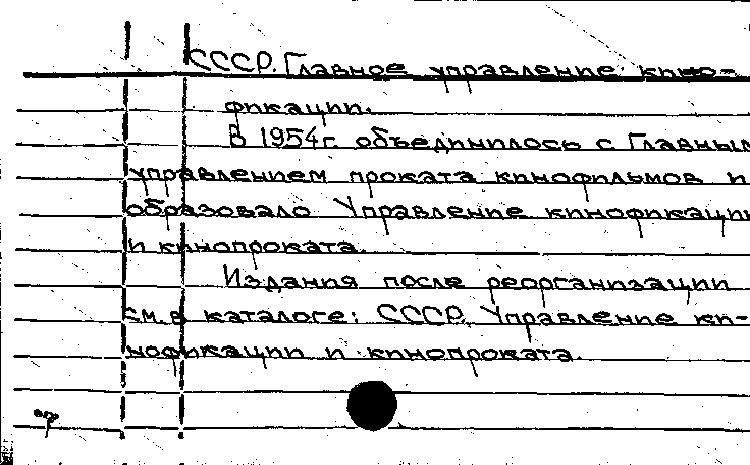 СССР. Главное управление кино-
фикации.
В 1954г. объединилось с Главным
управлением проката кинофильмов и
образовало Управление кинофикации
и кинопроката.
Издания после реорганизации
см. в каталоге: СССР. Управление ки-
нофикации и кинопроката.